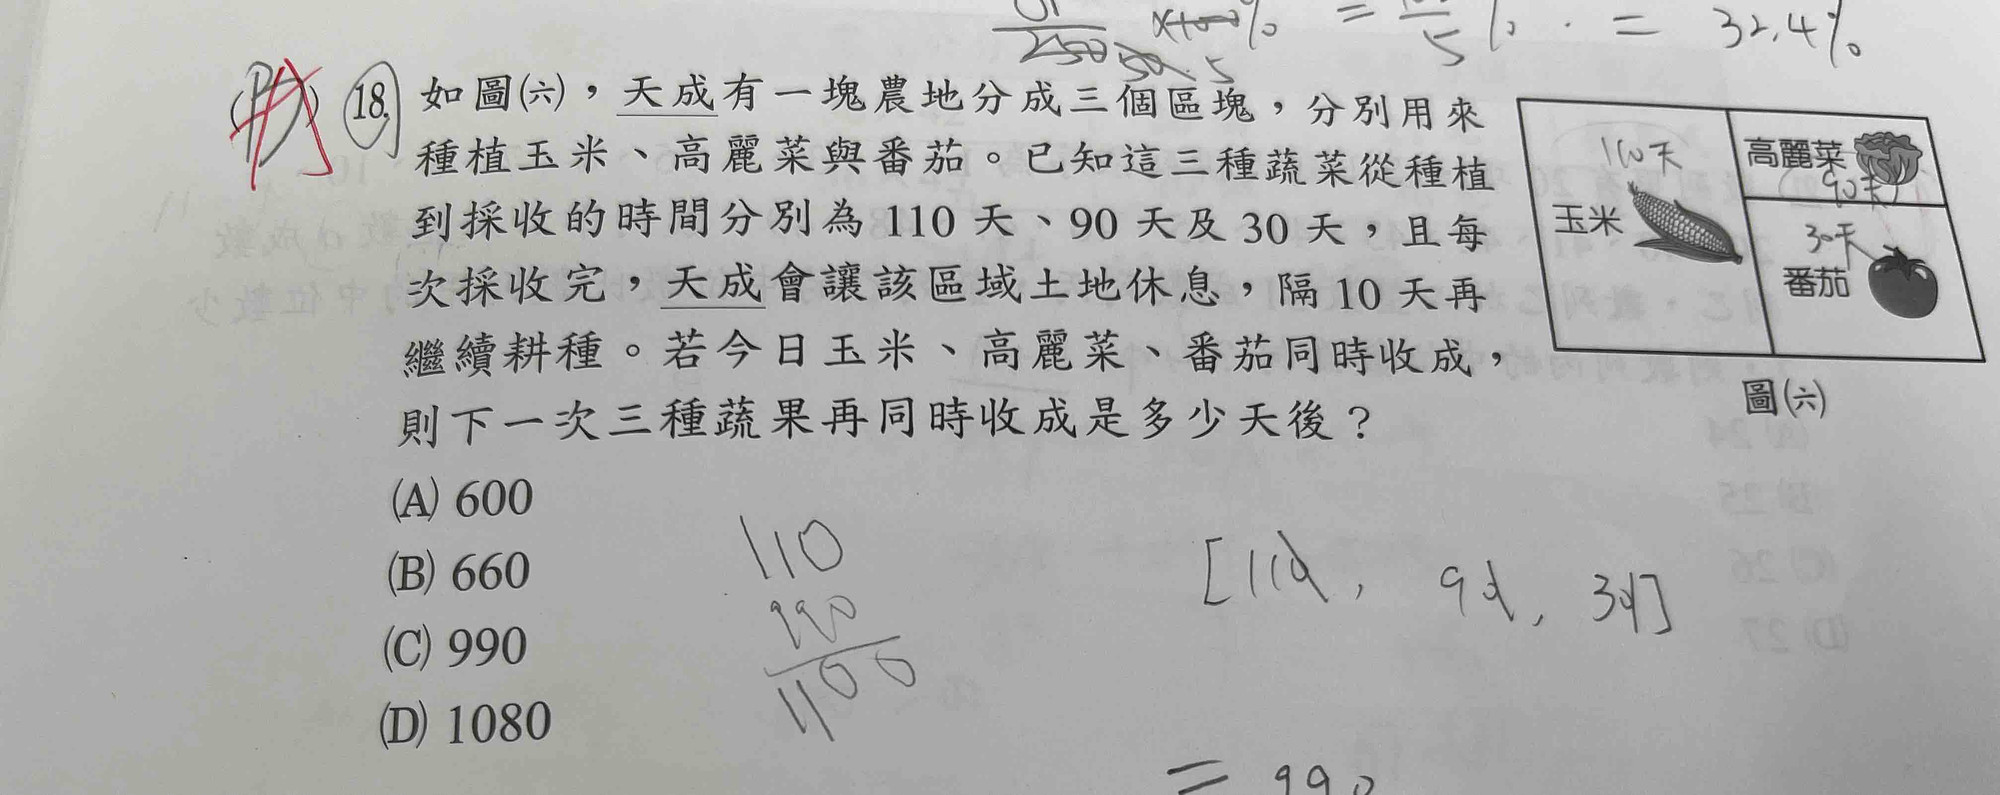 = 32.4%
18. 如圖㈥，天成有一塊農地分成三個區塊，分別用來
種植玉米、高麗菜與番茄。已知這三種蔬菜從種植
到採收的時間分別為 110 天、90 天及 30 天，且每
次採收完，天成會讓該區域土地休息，隔 10 天再
繼續耕種。若今日玉米、高麗菜、番茄同時收成，
則下一次三種蔬果再同時收成是多少天後？
(A) 600
(B) 660
(C) 990
(D) 1080
110天
高麗菜
90天
玉米
30天
番茄
圖㈥
110
990
1100
[110, 90, 30]
= 990